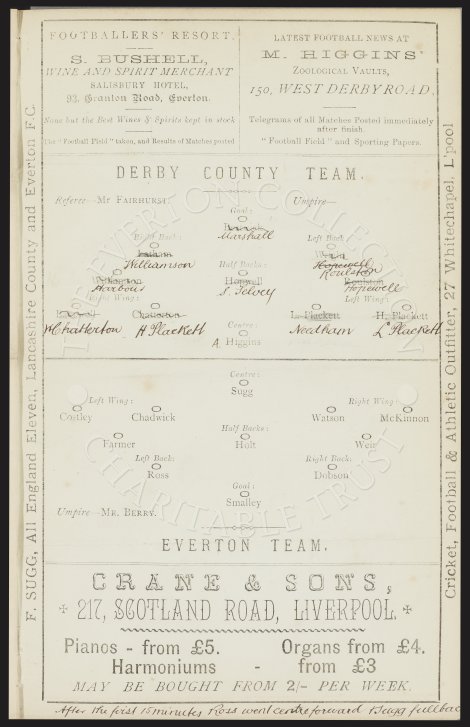 FOOTBALLERS' RESORT.
S. BUSHELL,
WINE AND SPIRIT MERCHANT
SALISBURY HOTEL,
93, Granton Road, Everton.
None but the Best Wines & Spirits kept in stock
The "Football Field" taken, and Results of Matches posted
LATEST FOOTBALL NEWS AT
M. HIGGINS'
ZOOLOGICAL VAULTS,
150, WEST DERBY ROAD.
Telegrams of all Matches Posted immediately
after finish.
"Football Field" and Sporting Papers.
F. SUGG, All England Eleven, Lancashire County and Everton F.C.
Cricket, Football & Athletic Outfitter, 27 Whitechapel, L'pool
DERBY COUNTY TEAM.
Referee—Mr FAIRHURST. Umpire—
Goal:
Marshall
Right Back: Left Back:
Latham
Williamson Hopewell
Roulston
Half Backs:
Williamson Hopwell Roulston
Harbour S. Selvey Hopewell
Right Wing: Left Wing:
Chatterton L. Plackett H. Plackett
W Chatterton H Plackett Needham L. Plackett
Centre:
A Higgins
THE EVERTON COLLECTION
CHARITABLE TRUST
Centre:
Sugg
Left Wing: Right Wing:
Costley Chadwick Watson McKinnon
Half Backs:
Farmer Holt Weir
Left Back: Right Back:
Ross Dobson
Goal:
Smalley
Umpire—MR. BERRY.
EVERTON TEAM.
CRANE & SONS,
217, SCOTLAND ROAD, LIVERPOOL.
Pianos - from £5. Organs from £4.
Harmoniums - from £3
MAY BE BOUGHT FROM 2/- PER WEEK.
After the first 15 minutes Ross went centre forward & Sugg fullback